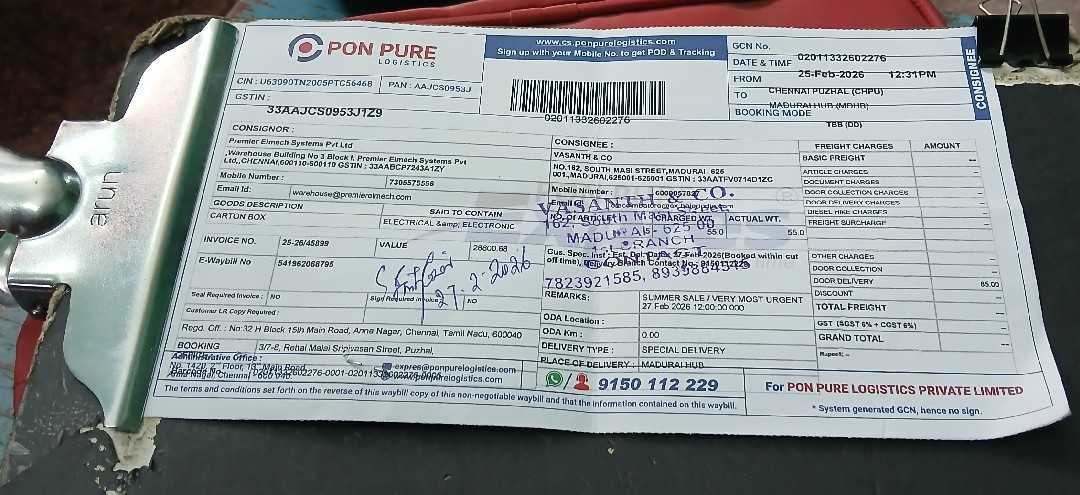 PON PURE
LOGISTICS
CIN : U63090TN2005PTC56468 PAN : AAJCS0953J
GSTIN :
33AAJCS0953J1Z9
www.cs.ponpurelogistics.com
Sign up with your Mobile No. to get POD & Tracking
02011332602276
GCN No.
02011332602276
DATE & TIME
25-Feb-2026 12:31PM
FROM
CHENNAI PUZHAL (CHPU)
TO
MADURAI HUB (MDHB)
BOOKING MODE
TBB (DD)
CONSIGNEE
CONSIGNOR :
Premier Elmech Systems Pvt Ltd
,Warehouse Building No 3 Block I, Premier Elmech Systems Pvt
Ltd,,CHENNAI,600110-600110 GSTIN : 33AABCP7243A1ZY
Mobile Number : 7305575556
Email Id: warehouse@premierelmech.com
GOODS DESCRIPTION SAID TO CONTAIN
CARTON BOX ELECTRICAL &amp; ELECTRONIC
INVOICE NO. 25-26/45899 VALUE 26800.68
E-Waybill No 541962068795
Seal Required Invoice : NO Sign Required Invoice NO
Customer LR Copy Required :
27.2.2026
CONSIGNEE :
VASANTH & CO
NO.162, SOUTH MASI STREET,MADURAI. 625
001,MADURAI,625001-625001 GSTIN : 33AATFV0714D1ZC
Mobile Number :
Email
NO. OF ARTICLE CHARGED WT. ACTUAL WT.
55.0 55.0
VASANTH & CO.
162, South Masi Street
MADURAI - 625 00
BRANCH
7823921585,
Cus. Spec. Inst : Est. Dpl. Date: 27-Feb-2026(Booked within cut
off time), Delivery Branch Contact No.:
REMARKS: SUMMER SALE / VERY MOST URGENT
27 Feb 2026 12:00:00:000
ODA Location :
ODA Km : 0.00
DELIVERY TYPE : SPECIAL DELIVERY
PLACE OF DELIVERY : MADURAI HUB
FREIGHT CHARGES AMOUNT
BASIC FREIGHT --
ARTICLE CHARGES --
DOCUMENT CHARGES --
DOOR COLLECTION CHARGES --
DOOR DELIVERY CHARGES --
DIESEL HIKE CHARGES --
FREIGHT SURCHARGE --
OTHER CHARGES --
DOOR COLLECTION --
DOOR DELIVERY 85.00
DISCOUNT --
TOTAL FREIGHT --
GST (SGST 6% + CGST 6%) --
GRAND TOTAL --
Rupees: --
Regd. Off. : No:32 H Block 15th Main Road, Anna Nagar, Chennai, Tamil Nadu, 600040
BOOKING 3/7-8, Rettai Malai Srinivasan Street, Puzhal,
Administrative Office :
No. 1420, 2nd Floor, 13th Main Road,
Anna Nagar, Chennai - 600 040.
expres@ponpurelogistics.com
www.ponpurelogistics.com
9150 112 229
For PON PURE LOGISTICS PRIVATE LIMITED
* System generated GCN, hence no sign.
The terms and conditions set forth on the reverse of this waybill copy of this non-negotiable waybill and that the information contained on this waybill.
arun